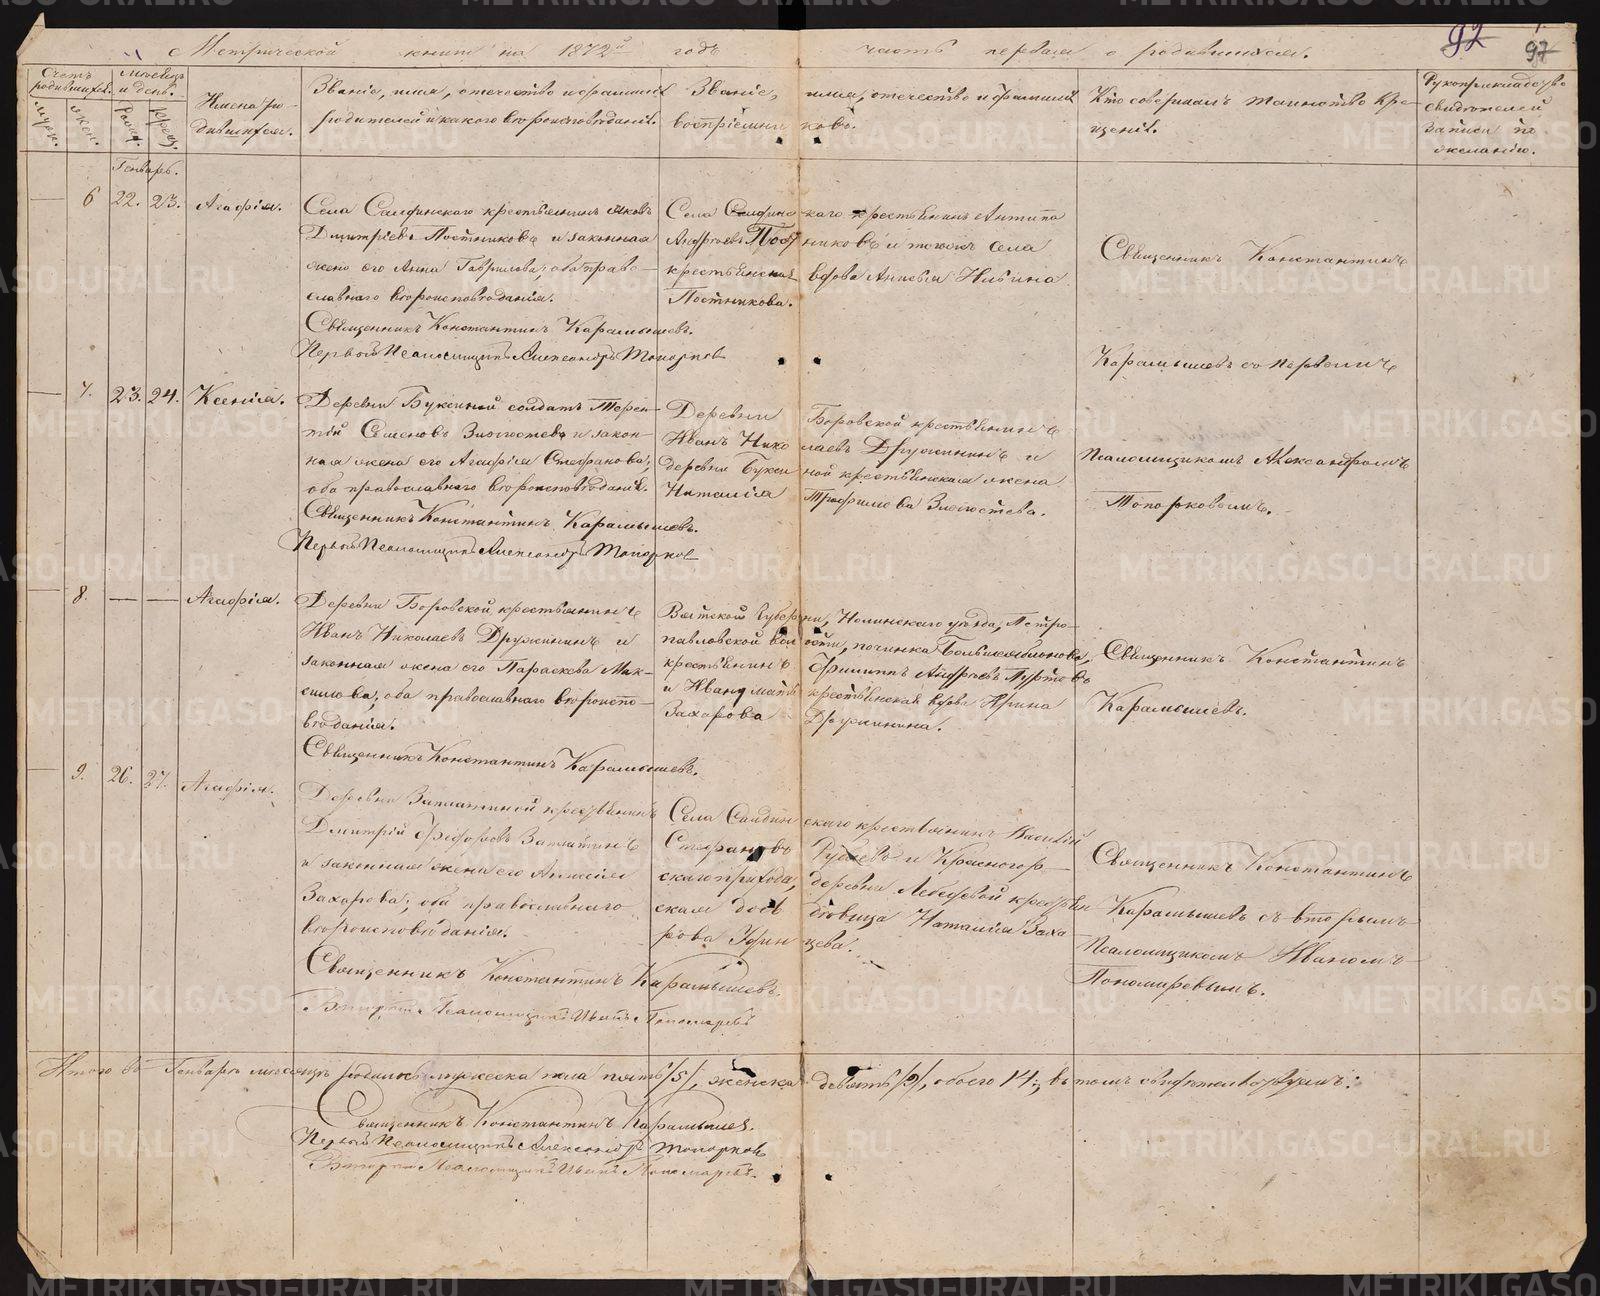 Метрической книги на 1872й годъ часть первая о родившихся.
92
97
Счетъ родившихся.
Мужес.
Женс.
Месяцъ и день.
Рожд.
Крещ.
Имена родившихся.
Званіе, имя, отечество и фамилія
родителей и какого вероисповеданія.
Званіе, имя, отечество и фамилія
воспріемниковъ.
Кто совершалъ таинство крещенія.
Рукоприкладство
свидетелей
записи по
желанію.
Генварь.
6 22. 23. Агафія.
Села крестьянинъ Яковъ
Дмитріевъ Постниковъ и законная
жена его Анна Гаврилова; оба право-
славнаго вероисповеданія.
Священникъ Константинъ Карамышевъ.
Первый Псаломщикъ Александръ Топорковъ
Села крестьянинъ Антипа
Андреевъ Постниковъ и тогоже села
крестьянская вдова Анисья Ильина
Постникова.
Священникъ Константинъ
Карамышевъ съ первымъ
Псаломщикомъ Александромъ
Топорковымъ.
7. 23. 24. Ксенія.
Деревни Букиной солдатъ Терен-
тій Семеновъ и закон-
ная жена его Агафія Стефанова;
оба православнаго вероисповеданія.
Священникъ Константинъ Карамышевъ.
Первый Псаломщикъ Александръ Топорковъ
Деревни Боровской крестьянинъ
Иванъ Николаевъ Дружининъ и
деревни Букиной крестьянская жена
Наталія Трофимова
8. — — Агафія.
Деревни Боровской крестьянинъ
Иванъ Николаевъ Дружининъ и
законная жена его Параскева Мак-
симова; оба православнаго вероиспо-
веданія.
Священникъ Константинъ Карамышевъ.
Вятской Губерніи, Нолинскаго уезда, Петро-
павловской волости, починка
крестьянинъ Филиппъ Андреевъ
и Ивану мать крестьянская вдова Ирина
Захарова Дружинина.
Священникъ Константинъ
Карамышевъ.
9. 26. 27. Агафія.
Деревни Заплатиной крестьянинъ
Дмитрій Федоровъ Заплатинъ
и законная жена его
Захарова; оба православнаго
вероисповеданія.
Священникъ Константинъ Карамышевъ.
Вторый Псаломщикъ Иванъ Пономаревъ
Села крестьянинъ Василій
Стефановъ и Красногор-
скаго прихода, деревни Лебедевой крестьян-
ская девица Наталія Заха-
рова
Священникъ Константинъ
Карамышевъ съ вторымъ
Псаломщикомъ Иваномъ
Пономаревымъ.
Итого въ Генваре месяце родилось мужеска пола пять /5/, женска девять /9/, обоего 14; въ томъ свидетельствуемъ:
Священникъ Константинъ Карамышевъ.
Первый Псаломщикъ Александръ Топорковъ
Вторый Псаломщикъ Иванъ Пономаревъ.
METRIKI.GASO-URAL.RU